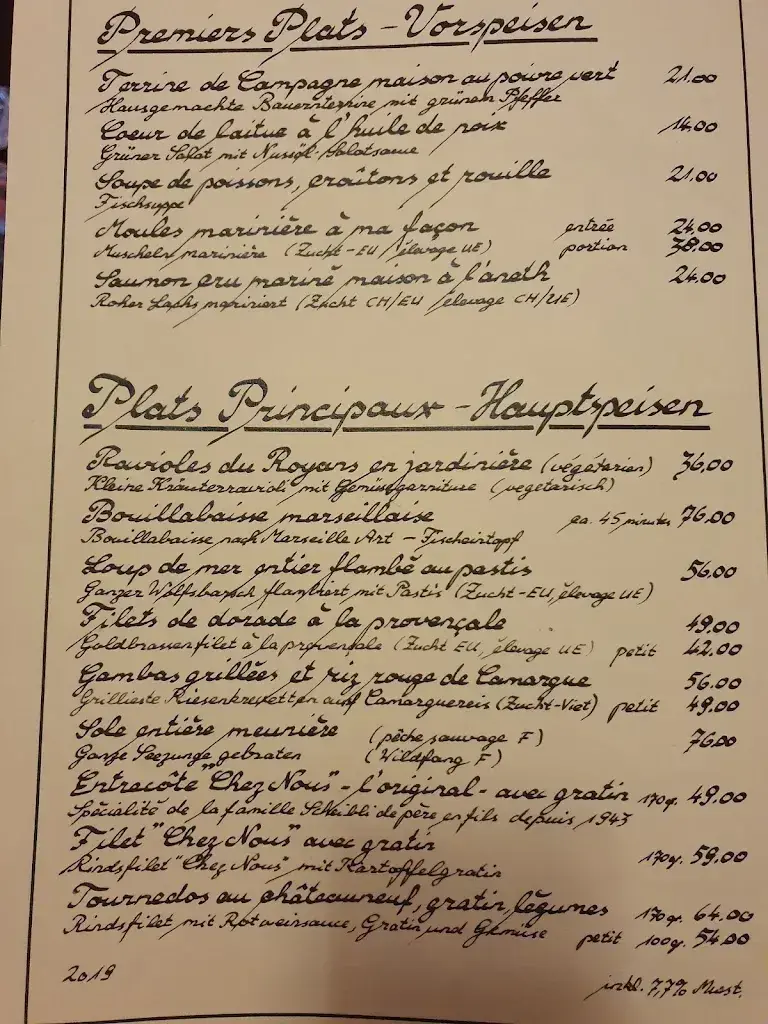 Premiers Plats - Vorspeisen
Terrine de Campagne maison au poivre vert 21.00
Hausgemachte Bauernterrine mit grünem Pfeffer
Coeur de laitue à l'huile de noix 14.00
Grüner Salat mit Nussöl-Salatsauce
Soupe de poissons, croûtons et rouille 21.00
Fischsuppe
Moules marinière à ma façon entrée 24.00
Muscheln marinière (Zucht-EU / élevage UE) portion 38.00
Saumon cru mariné maison à l'aneth 24.00
Roher Lachs mariniert (Zucht CH/EU / élevage CH/UE)
Plats Principaux - Hauptspeisen
Ravioles du Royans en jardinière (végétarien) 36.00
Kleine Kräuterravioli mit Gemüsegarniture (vegetarisch)
Bouillabaisse marseillaise ca. 45 minutes 76.00
Bouillabaisse nach Marseille Art - Fischeintopf
Loup de mer entier flambé au pastis 56.00
Ganzer Wolfsbarsch flambiert mit Pastis (Zucht-EU, élevage UE)
Filets de dorade à la provençale 49.00
Goldbrassenfilet à la provençale (Zucht EU, élevage UE) petit 42.00
Gambas grillées et riz rouge de Camargue 56.00
Grillieste Riesenkrevetten auf Camarguereis (Zucht-Viet) petit 49.00
Sole entière meunière (pêche sauvage F) 76.00
Ganze Seezunge gebraten (Wildfang F)
Entrecôte "Chez Nous" - l'original - avec gratin 170g. 49.00
Spécialité de la famille Scheibli de père en fils depuis 1943
Filet "Chez Nous" avec gratin 170g. 59.00
Rindsfilet "Chez Nous" mit Kartoffelgratin
Tournedos au châteauneuf, gratin, légumes 170gr. 64.00
Rindsfilet mit Rotweinsauce, Gratin und Gemüse petit 100g. 54.00
2019 inkl. 7,7% Mwst.